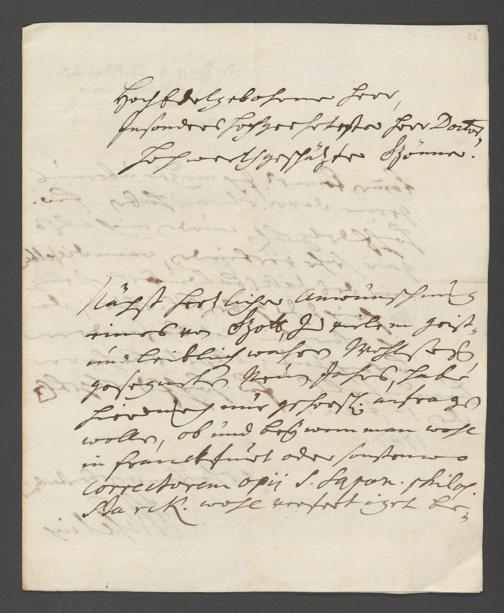 25
HochEdelgebohrner Herr,
Insonders hochgeehrtester Herr Doctor,
Hochwerthgeschätzter Gönner.
Nächst hertzlicher Anwünschung
eines von Gott, an vielem geist-
und leiblich wahren Wohlseyn
geseegneten Neuen Jahres, habe
hierdurch nur gehorst. anfragen
wollen, ob und bey wem man wohl
in Franckfurt oder sonstenwo
correctorem opii s. Sapon. philos.
Starck. wohl verfertiget be-